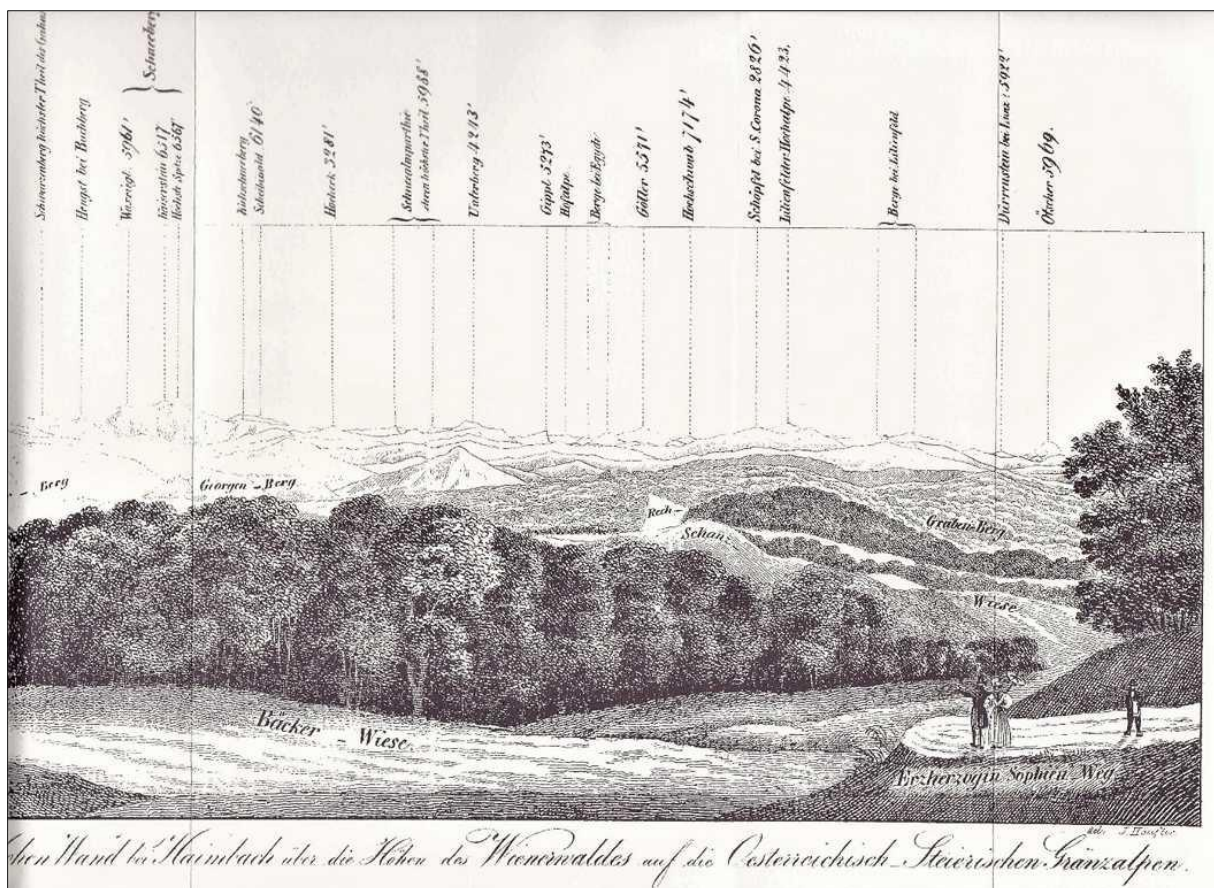 Schwarzenberg höchster Theil des
Hengst bei Buchberg
Schneeberg
Waxriegl. 5961'
Kaiserstein 6517
Hochste Spitze 6567'
Kuhschneeberg
Scheibwald 6140'
Hocheck 3281'
Schneealmparthie
deren höchster Theil 5988'
Unterberg 4243'
Gippl 5273'
Hofalpe.
Berge bei Egydi
Göller 5571'
Hochschwab 7174'
Schöpfel bei S. Corona 2826'
Lilienfelder Hochalpe. 4423.
Berge bei Lilienfeld.
Dürrenstein bei Lunz: 5922'
Ötscher 5969.
- Berg
Georgen - Berg
Rech -
Schan:
Graben-Berg
Wiese
Backer - Wiese
Erzherzogin Sophien Weg
del. J. Häufler
chen Wand bei Haimbach über die Höhen des Wienerwaldes auf die Oesterreichisch-Steierischen Gränzalpen.